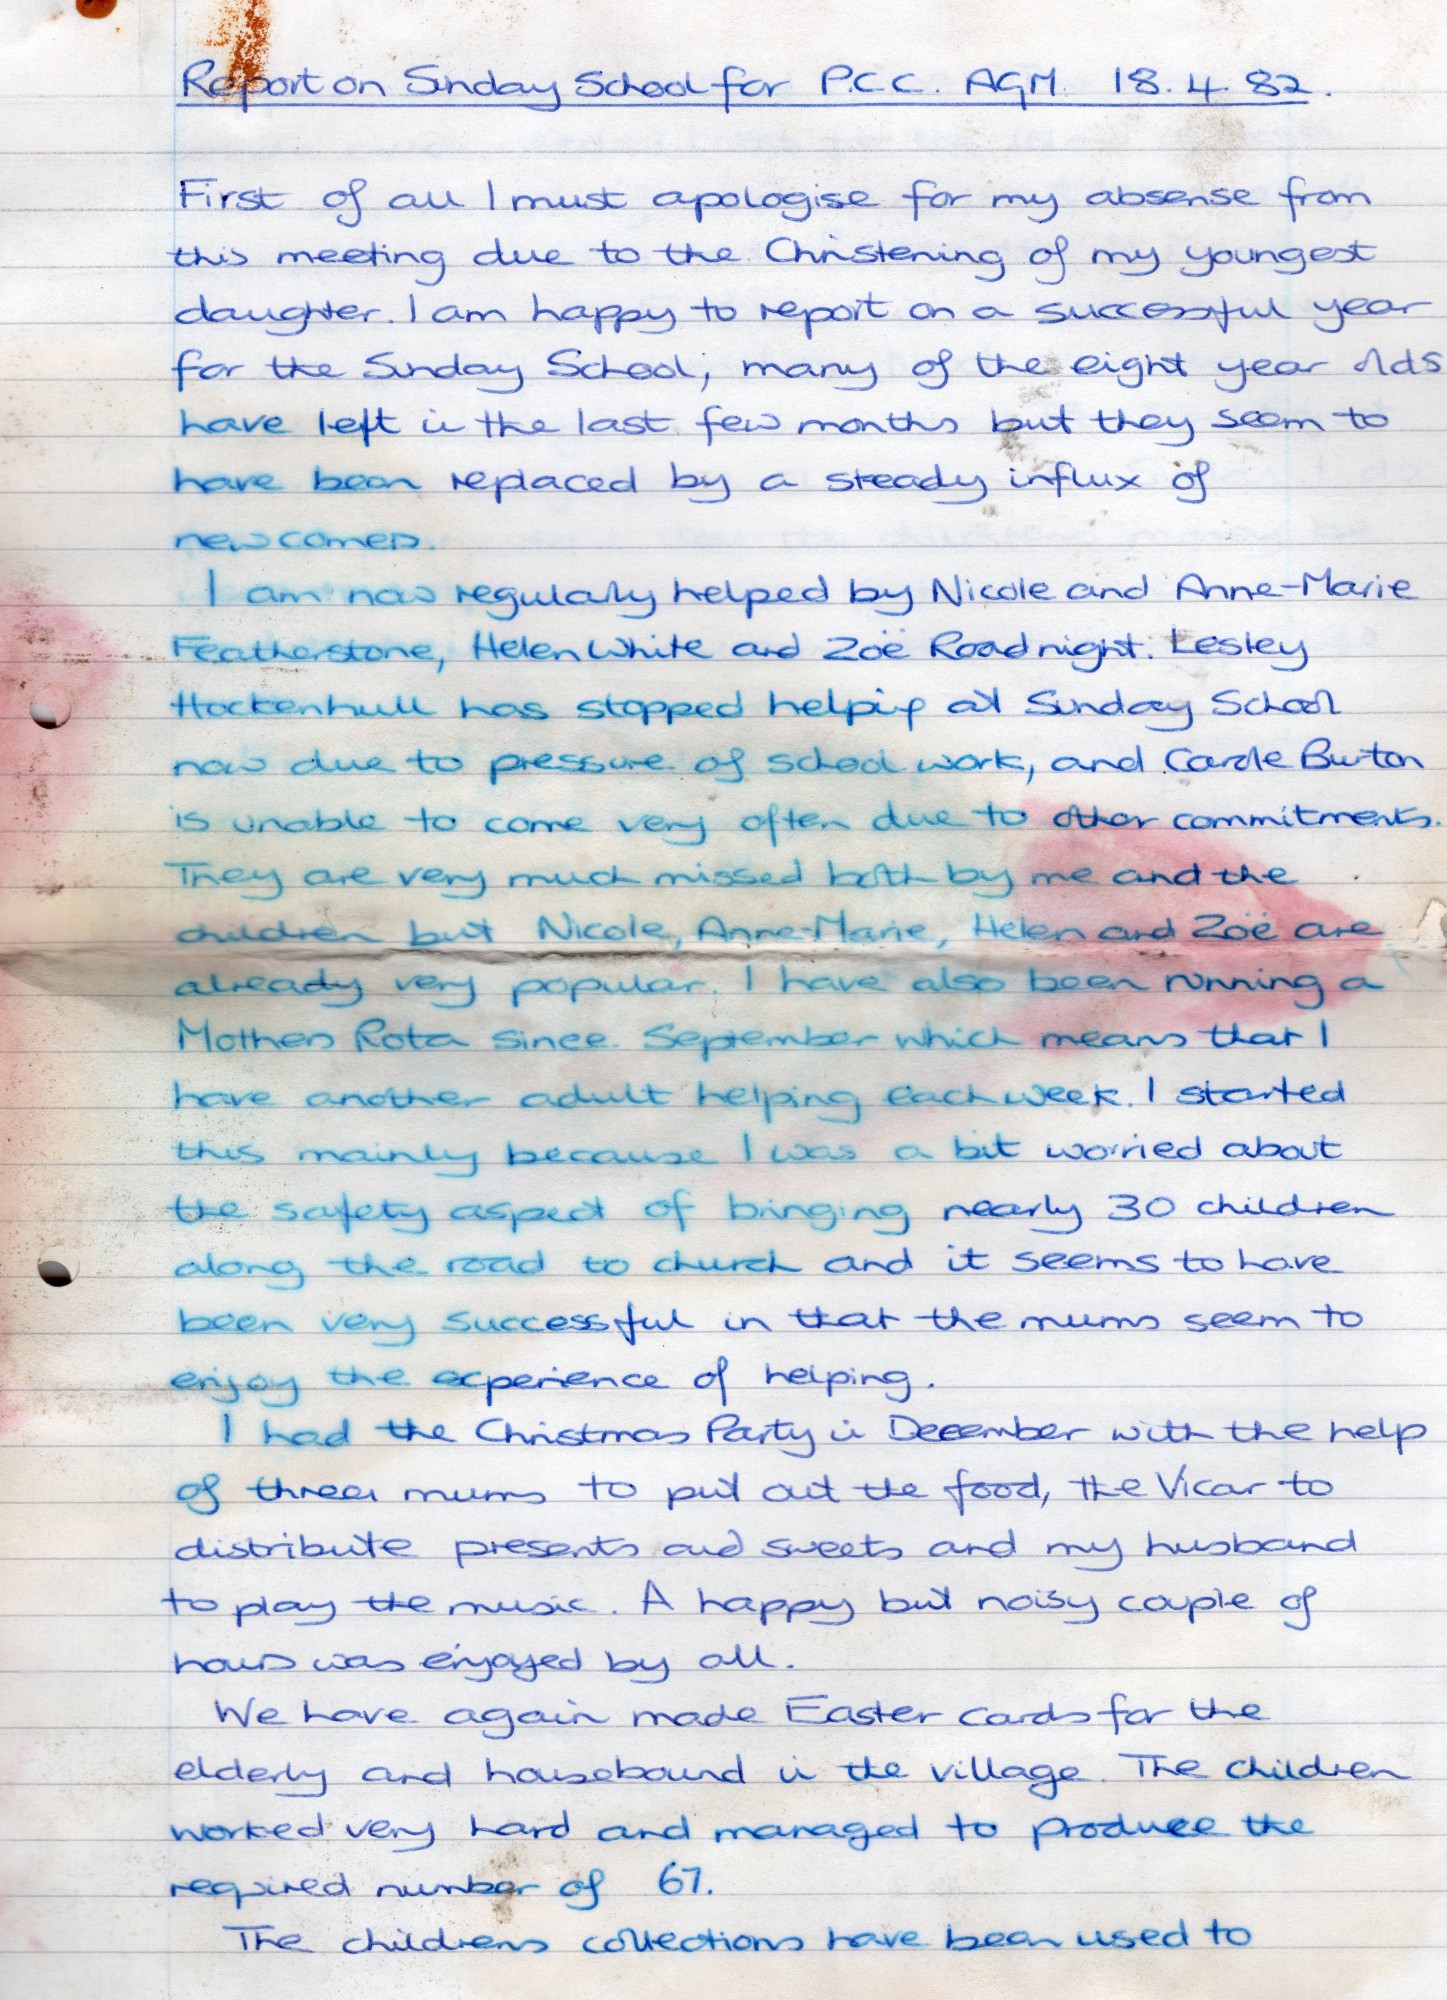 Report on Sunday School for P.C.C. AGM. 18.4.82.
First of all I must apologise for my absense from
this meeting due to the Christening of my youngest
daughter. I am happy to report on a successful year
for the Sunday School; many of the eight year olds
have left in the last few months but they seem to
have been replaced by a steady influx of
newcomers.
I am now regularly helped by Nicole and Anne-Marie
Featherstone, Helen White and Zoë Roadnight. Lesley
Hockenhull has stopped helping at Sunday School
now due to pressure of school work, and Carole Burton
is unable to come very often due to other commitments.
They are very much missed both by me and the
children but Nicole, Anne-Marie, Helen and Zoë are
already very popular. I have also been running a
Mothers Rota since September which means that I
have another adult helping each week. I started
this mainly because I was a bit worried about
the safety aspect of bringing nearly 30 children
along the road to church and it seems to have
been very successful in that the mums seem to
enjoy the experience of helping.
I had the Christmas Party in December with the help
of three mums to put out the food, the Vicar to
distribute presents and sweets and my husband
to play the music. A happy but noisy couple of
hours was enjoyed by all.
We have again made Easter cards for the
elderly and housebound in the village. The children
worked very hard and managed to produce the
required number of 67.
The childrens collections have been used to